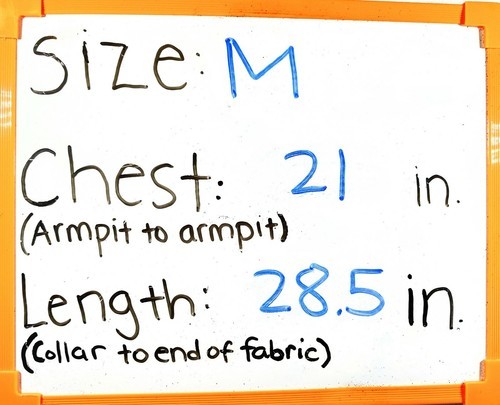 Size: M
Chest: 21 in.
(Armpit to armpit)
Length: 28.5 in.
(Collar to end of fabric)